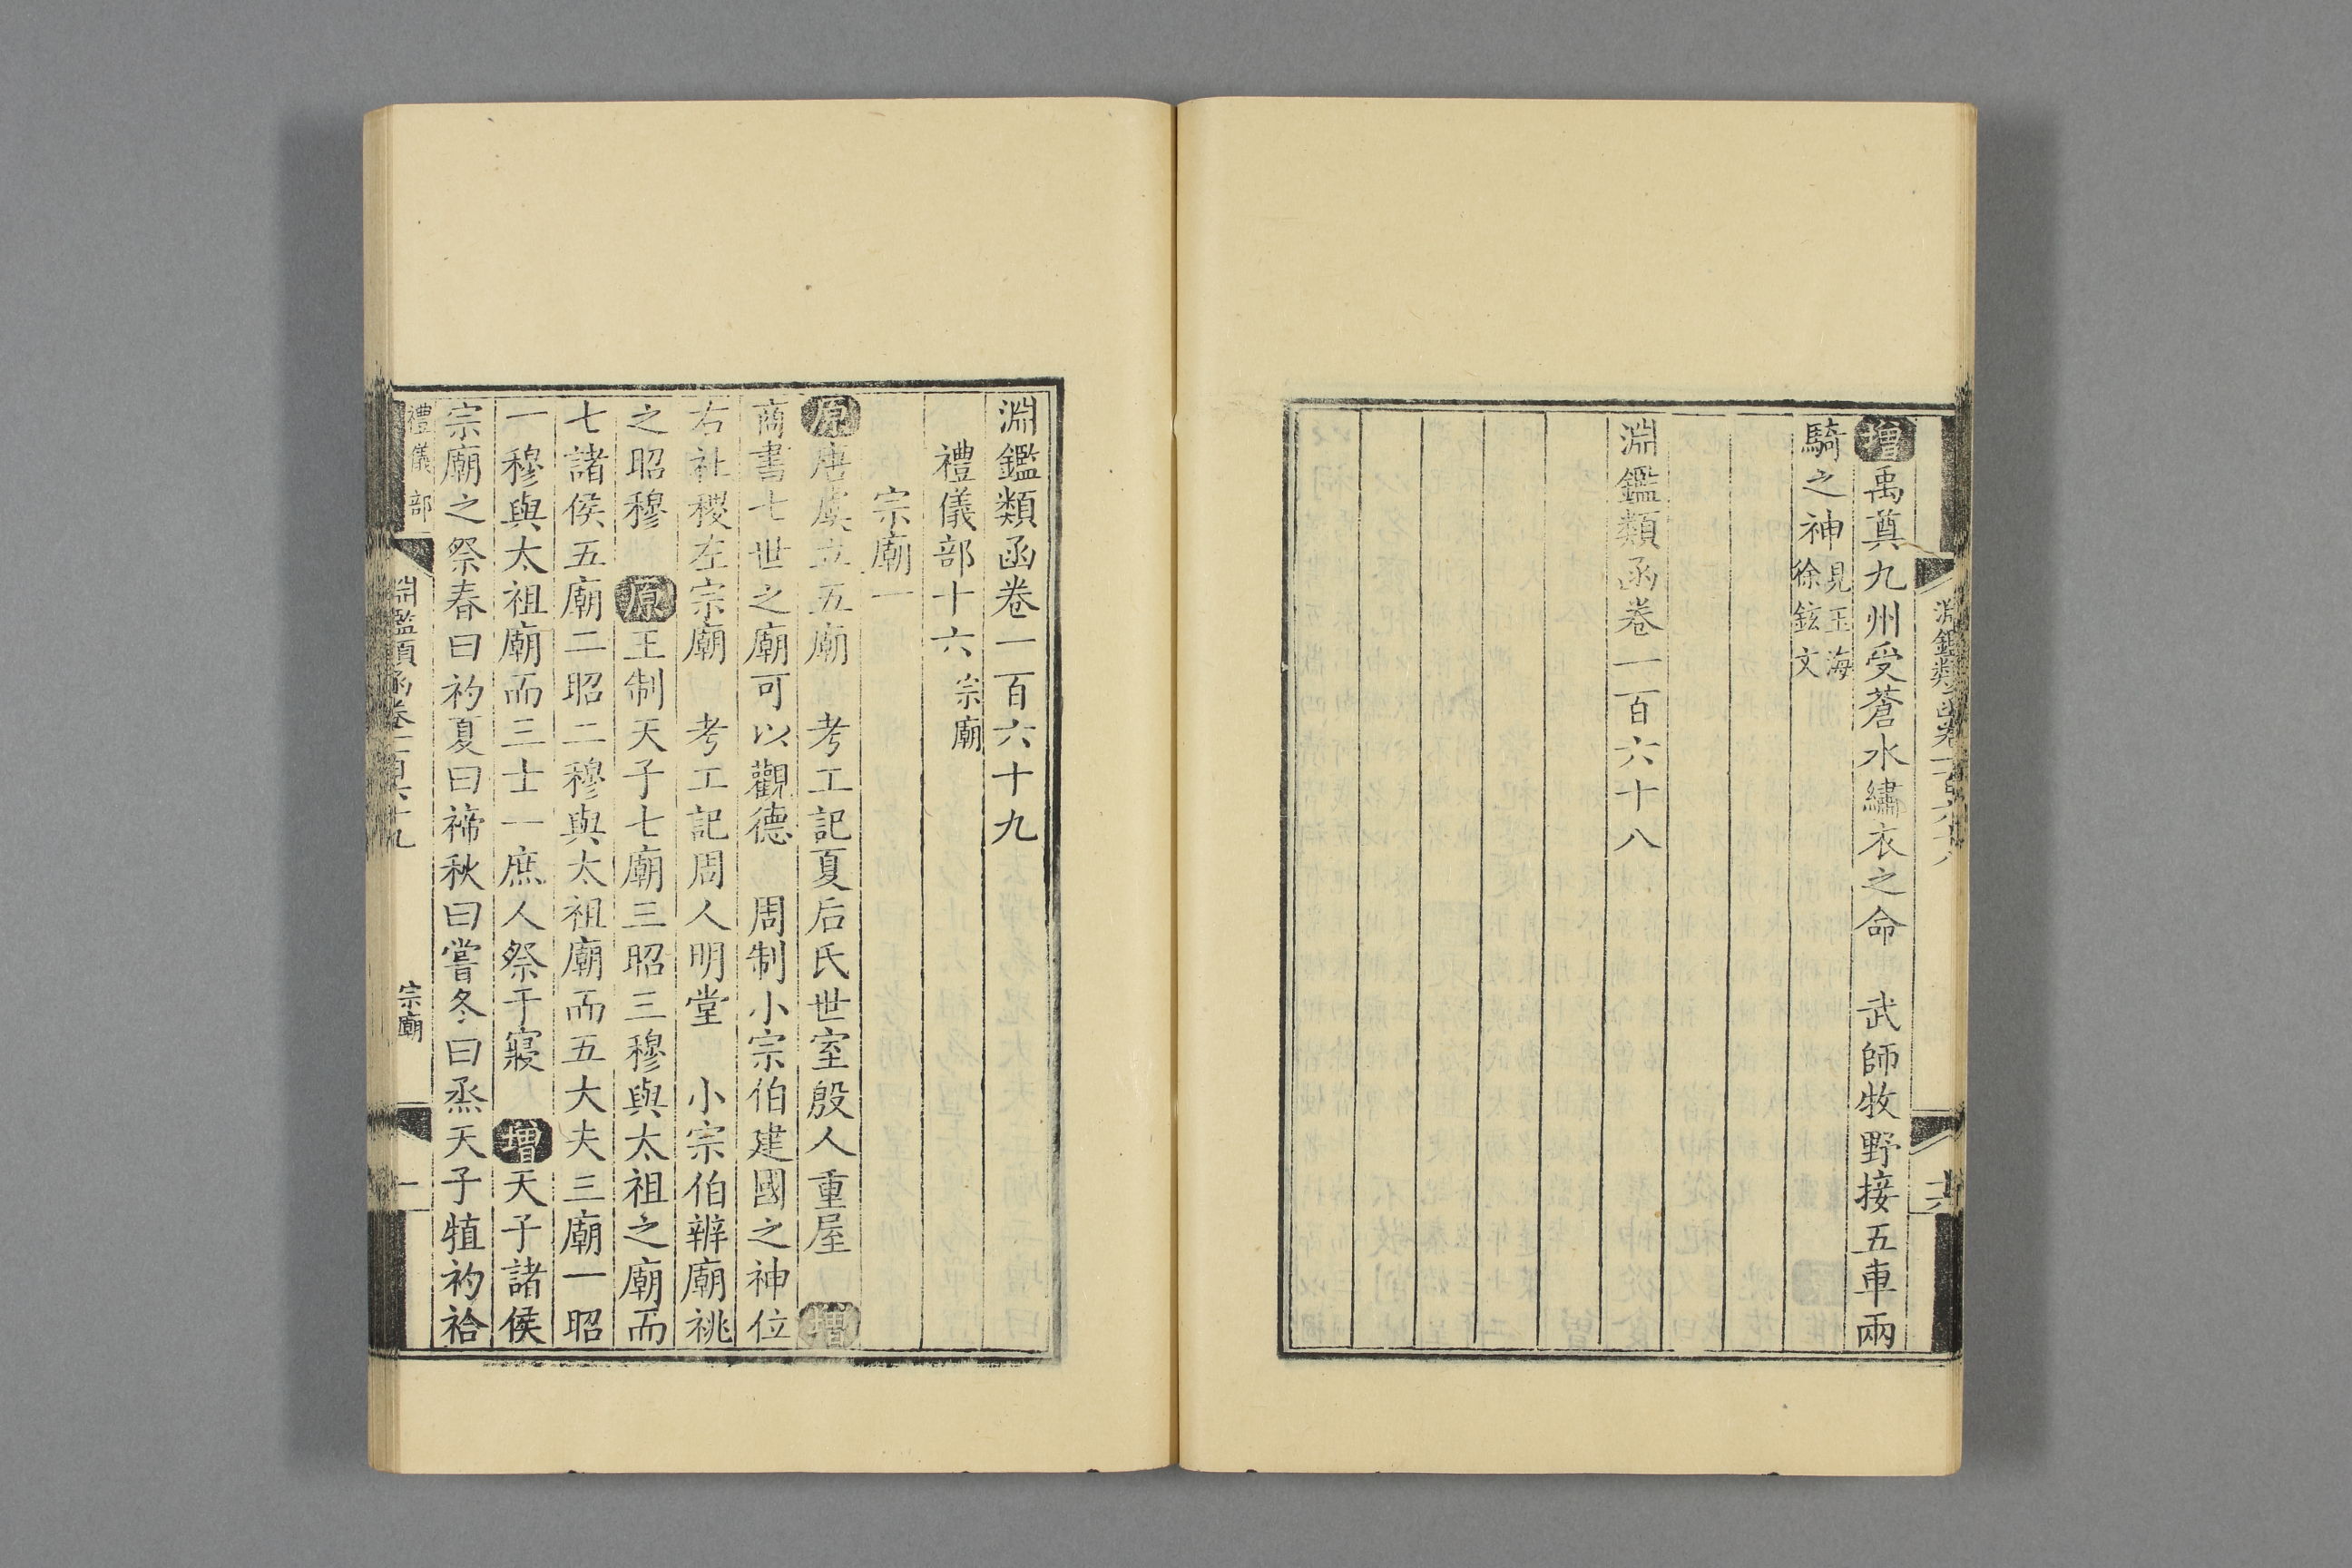 增禹奠九州受蒼水繡衣之命　武師牧野接五車兩
騎之神見王海徐鉉文
淵鑑類函卷一百六十八
淵鑑類函卷一百六十八
十六
淵鑑類函卷一百六十九
禮儀部十六宗廟
宗廟一
原唐虞立五廟　考工記夏后氏世室殷人重屋　增
商書七世之廟可以觀德　周制小宗伯建國之神位
右社稷左宗廟　考工記周人明堂　小宗伯辨廟祧
之昭穆　原王制天子七廟三昭三穆與太祖之廟而
七諸侯五廟二昭二穆與太祖廟而五大夫三廟一昭
一穆與太祖廟而三士一庶人祭于寢　增天子諸侯
宗廟之祭春曰礿夏曰禘秋曰嘗冬曰烝天子犆礿祫
禮儀部　淵鑑類函卷一百六十九　宗廟　一